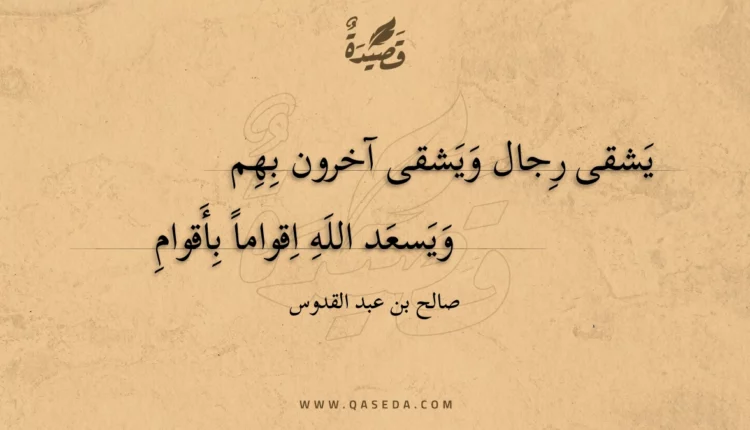 قَصِيْدَةٌ
يَشقى رِجال وَيَشقى آخرون بِهِم
وَيَسعَد اللَهِ اِقواماً بِأَقوامِ
صالح بن عبد القدوس
WWW.QASEDA.COM